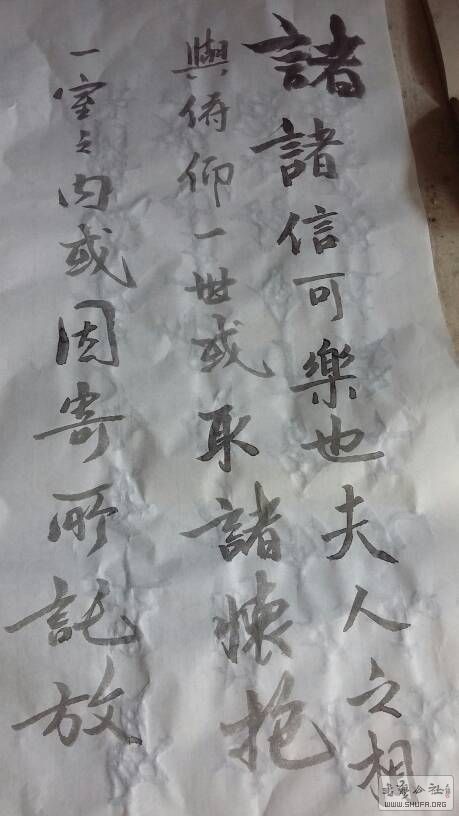 諸諸信可樂也夫人之相
與俯仰一世或取諸懷抱
一室之内或因寄所託放
WWW.SHUFA.ORG